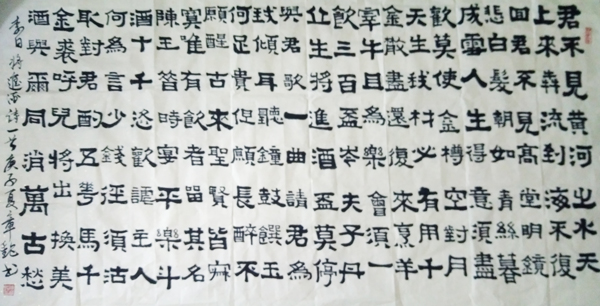 君不見黃河之水天
上來犇流到海不復
回君不見高堂明鏡
悲白髮朝如青絲暮
成雪人生得意須盡
歡莫使金樽空對月
天生我材必有用千
金散盡還復來烹羊
宰牛且為樂會須一
飲三百盃岑夫子丹
丘生將進酒盃莫停
與君歌一曲請君為
我傾耳聽鐘鼓饌玉
何足貴但願長醉不
願醒古來聖賢皆寂
寞唯有飲者留其名
陳王昔時宴平樂斗
酒十千恣歡謔主人
何為言少錢徑須沽
取對君酌五花馬千
金裘呼兒將出換美
酒與爾同消萬古愁
李白將進酒詩一首庚子夏章魏書